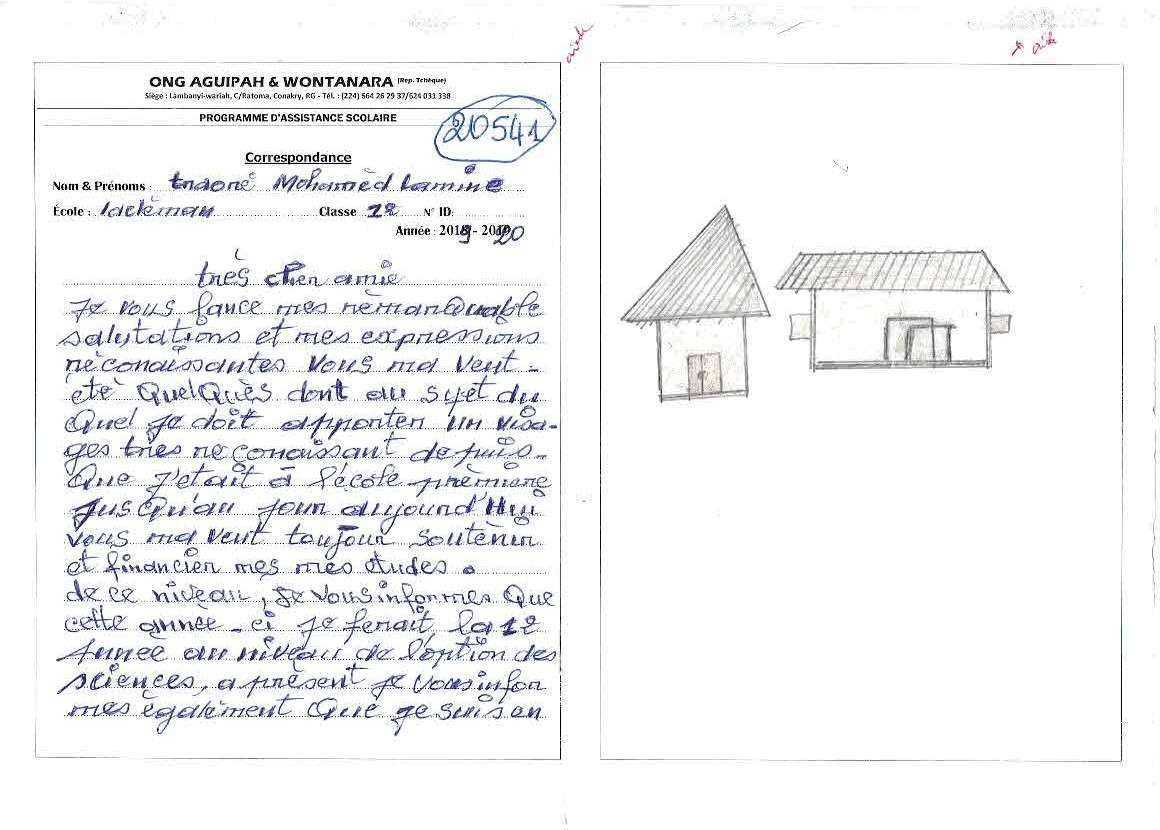 ONG AGUIPAH & WONTANARA (Rep. Tchèque)
Siège : Lambanyi-wariah, C/Ratoma, Conakry, RG - Tél. : (224) 664 26 29 37/624 031 338
PROGRAMME D'ASSISTANCE SCOLAIRE
20541
Correspondance
Nom & Prénoms : traoré Mohamèd Lamine
École : lackèman Classe 12 N° ID:
Année : 2019 - 2020
très cher amie
Je vous lance mes rèmarquable
salutations et mes expressions
réconaissantes vous ma veut -
étè quelquès dont au sujet du
quel je doit apporter un visa-
ges très reconaissant depuis -
que j'etait à l'école prèmiare
jusqu'au jour aujourd'Hui
vous ma veut toujour soutènir
et financier mes mes études.
de ce niveau, je vous informes que
cette année - ci je ferait la 12
Année au niveau de l'option des
sciences, a présent je vous infor
mes également que je suis en